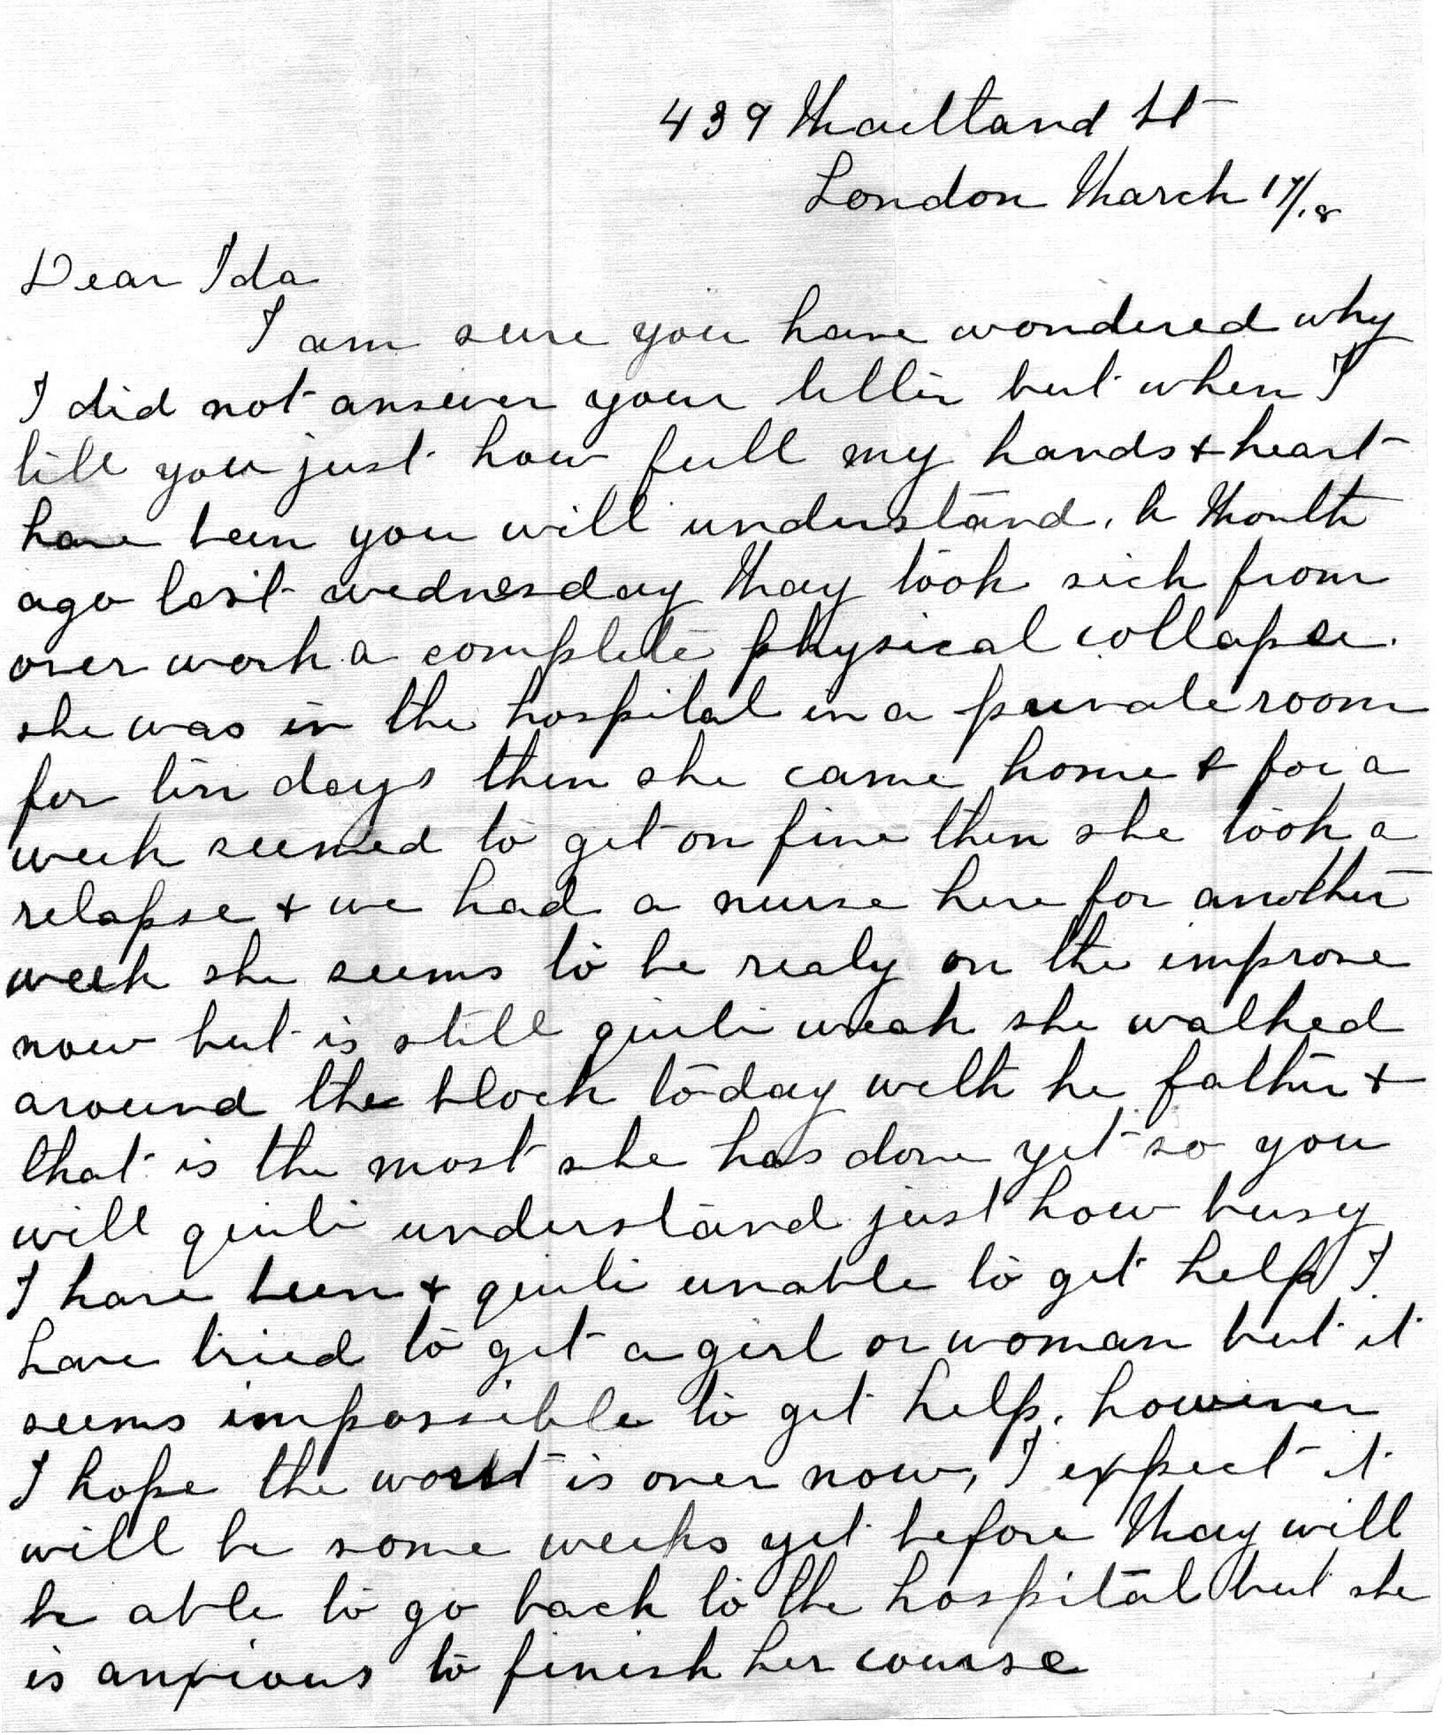 439 Maitland St
London March 17/18
Dear Ida
I am sure you have wondered why
I did not answer your letter but when I
tell you just how full my hands & heart
have been you will understand. A Month
ago last wednesday May took sick from
over work a complete physical collapse.
she was in the hospital in a private room
for ten days then she came home & for a
week seemed to get on fine then she took a
relapse & we had a nurse here for another
week she seems to be realy on the improve
now but is still quite weak she walked
around the block today with he father &
that is the most she has done yet so you
will quite understand just how busy
I have been & quite unable to get help I
have tried to get a girl or woman but it
seems impossible to get help. however
I hope the worst is over now, I expect it
will be some weeks yet before May will
be able to go back to the hospital but she
is anxious to finish her course